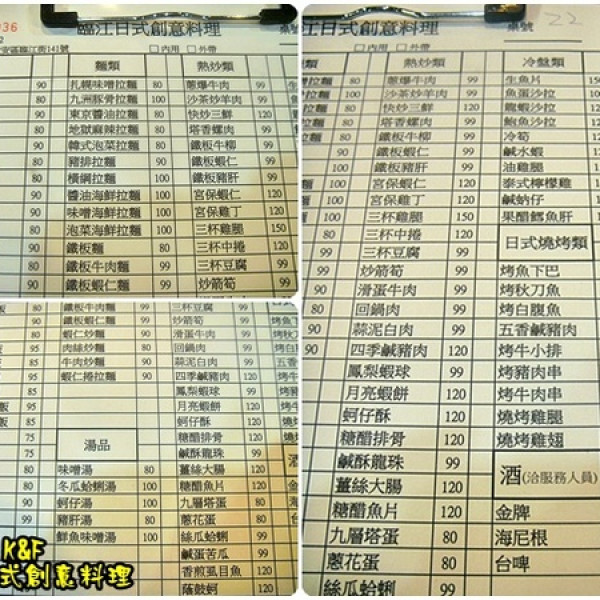 936
臨江日式創意料理
桌號
2
安區臨江街141號
□內用 □外帶
麵類 熱炒類
90 扎幌味噌拉麵 80 蔥爆牛肉 99
80 九洲豚骨拉麵 100 沙茶炒羊肉 99
90 東京醬油拉麵 80 快炒三鮮 120
80 地獄麻辣拉麵 80 塔香螺肉
90 韓式泡菜拉麵 90 鐵板牛柳 99
80 豬排拉麵 90 鐵板蝦仁 99
80 橫綱拉麵 100 鐵板豬肝 99
90 醬油海鮮拉麵 100 宮保蝦仁 120
90 味噌海鮮拉麵 100 宮保雞丁 120
80 泡菜海鮮拉麵 100 三杯雞腿 150
90 鐵板麵 80 三杯中捲 120
80 鐵板牛肉麵 99 三杯豆腐 99
90 鐵板蝦仁麵 99 炒箭筍 99
80 鐵板牛肉麵 99 三杯豆腐 99
90 鐵板蝦仁麵 99 炒箭筍 99
90 蝦仁炒麵 90 滑蛋牛肉 99
95 肉絲炒麵 80 回鍋肉 99
85 牛肉炒麵 80 蒜泥白肉 99
95 蝦仁捲拉麵 90 四季鹹豬肉 120
85 鳳梨蝦球 120
飯 85 月亮蝦餅 120
85 蚵仔酥 120
75 湯品 糖醋排骨 120
75 鹹酥龍珠 99
80 味噌湯 80 薑絲大腸 120
80 冬瓜蛤蜊湯 100 糖醋魚片 120
90 蚵仔湯 100 九層塔蛋 80
99 豬肝湯 80 蔥花蛋 80
鮮魚味噌湯 100 絲瓜蛤蜊 99
鹹蛋苦瓜 99
香煎虱目魚 120
蔭豉蚵 120
K&F
式創意料理
江日式創意料理
桌號 22
□內用 □外帶
熱炒類 冷盤類
80 蔥爆牛肉 99 生魚片
100 沙茶炒羊肉 99 魚蛋沙拉
80 快炒三鮮 120 龍蝦沙拉
80 塔香螺肉 99 鮑魚沙拉
90 鐵板牛柳 99 冷筍
90 鐵板蝦仁 99 鹹水蝦
100 鐵板豬肝 99 油雞腿
100 宮保蝦仁 120 泰式檸檬雞
100 宮保雞丁 120 鹹蚋仔
100 三杯雞腿 150 果醋鱈魚肝
80 三杯中捲 120 日式燒烤類
99 三杯豆腐 99
99 炒箭筍 99 烤魚下巴
90 滑蛋牛肉 99 烤秋刀魚
80 回鍋肉 99 烤白腹魚
80 蒜泥白肉 99 五香鹹豬肉
90 四季鹹豬肉 120 烤牛小排
鳳梨蝦球 120 烤豬肉串
月亮蝦餅 120 烤牛肉串
蚵仔酥 120 燒烤雞腿
糖醋排骨 120 燒烤雞翅
鹹酥龍珠 99 酒(洽服務人員)
薑絲大腸 120
糖醋魚片 120 金牌
九層塔蛋 80 海尼根
蔥花蛋 80 台啤
絲瓜蛤蜊 99